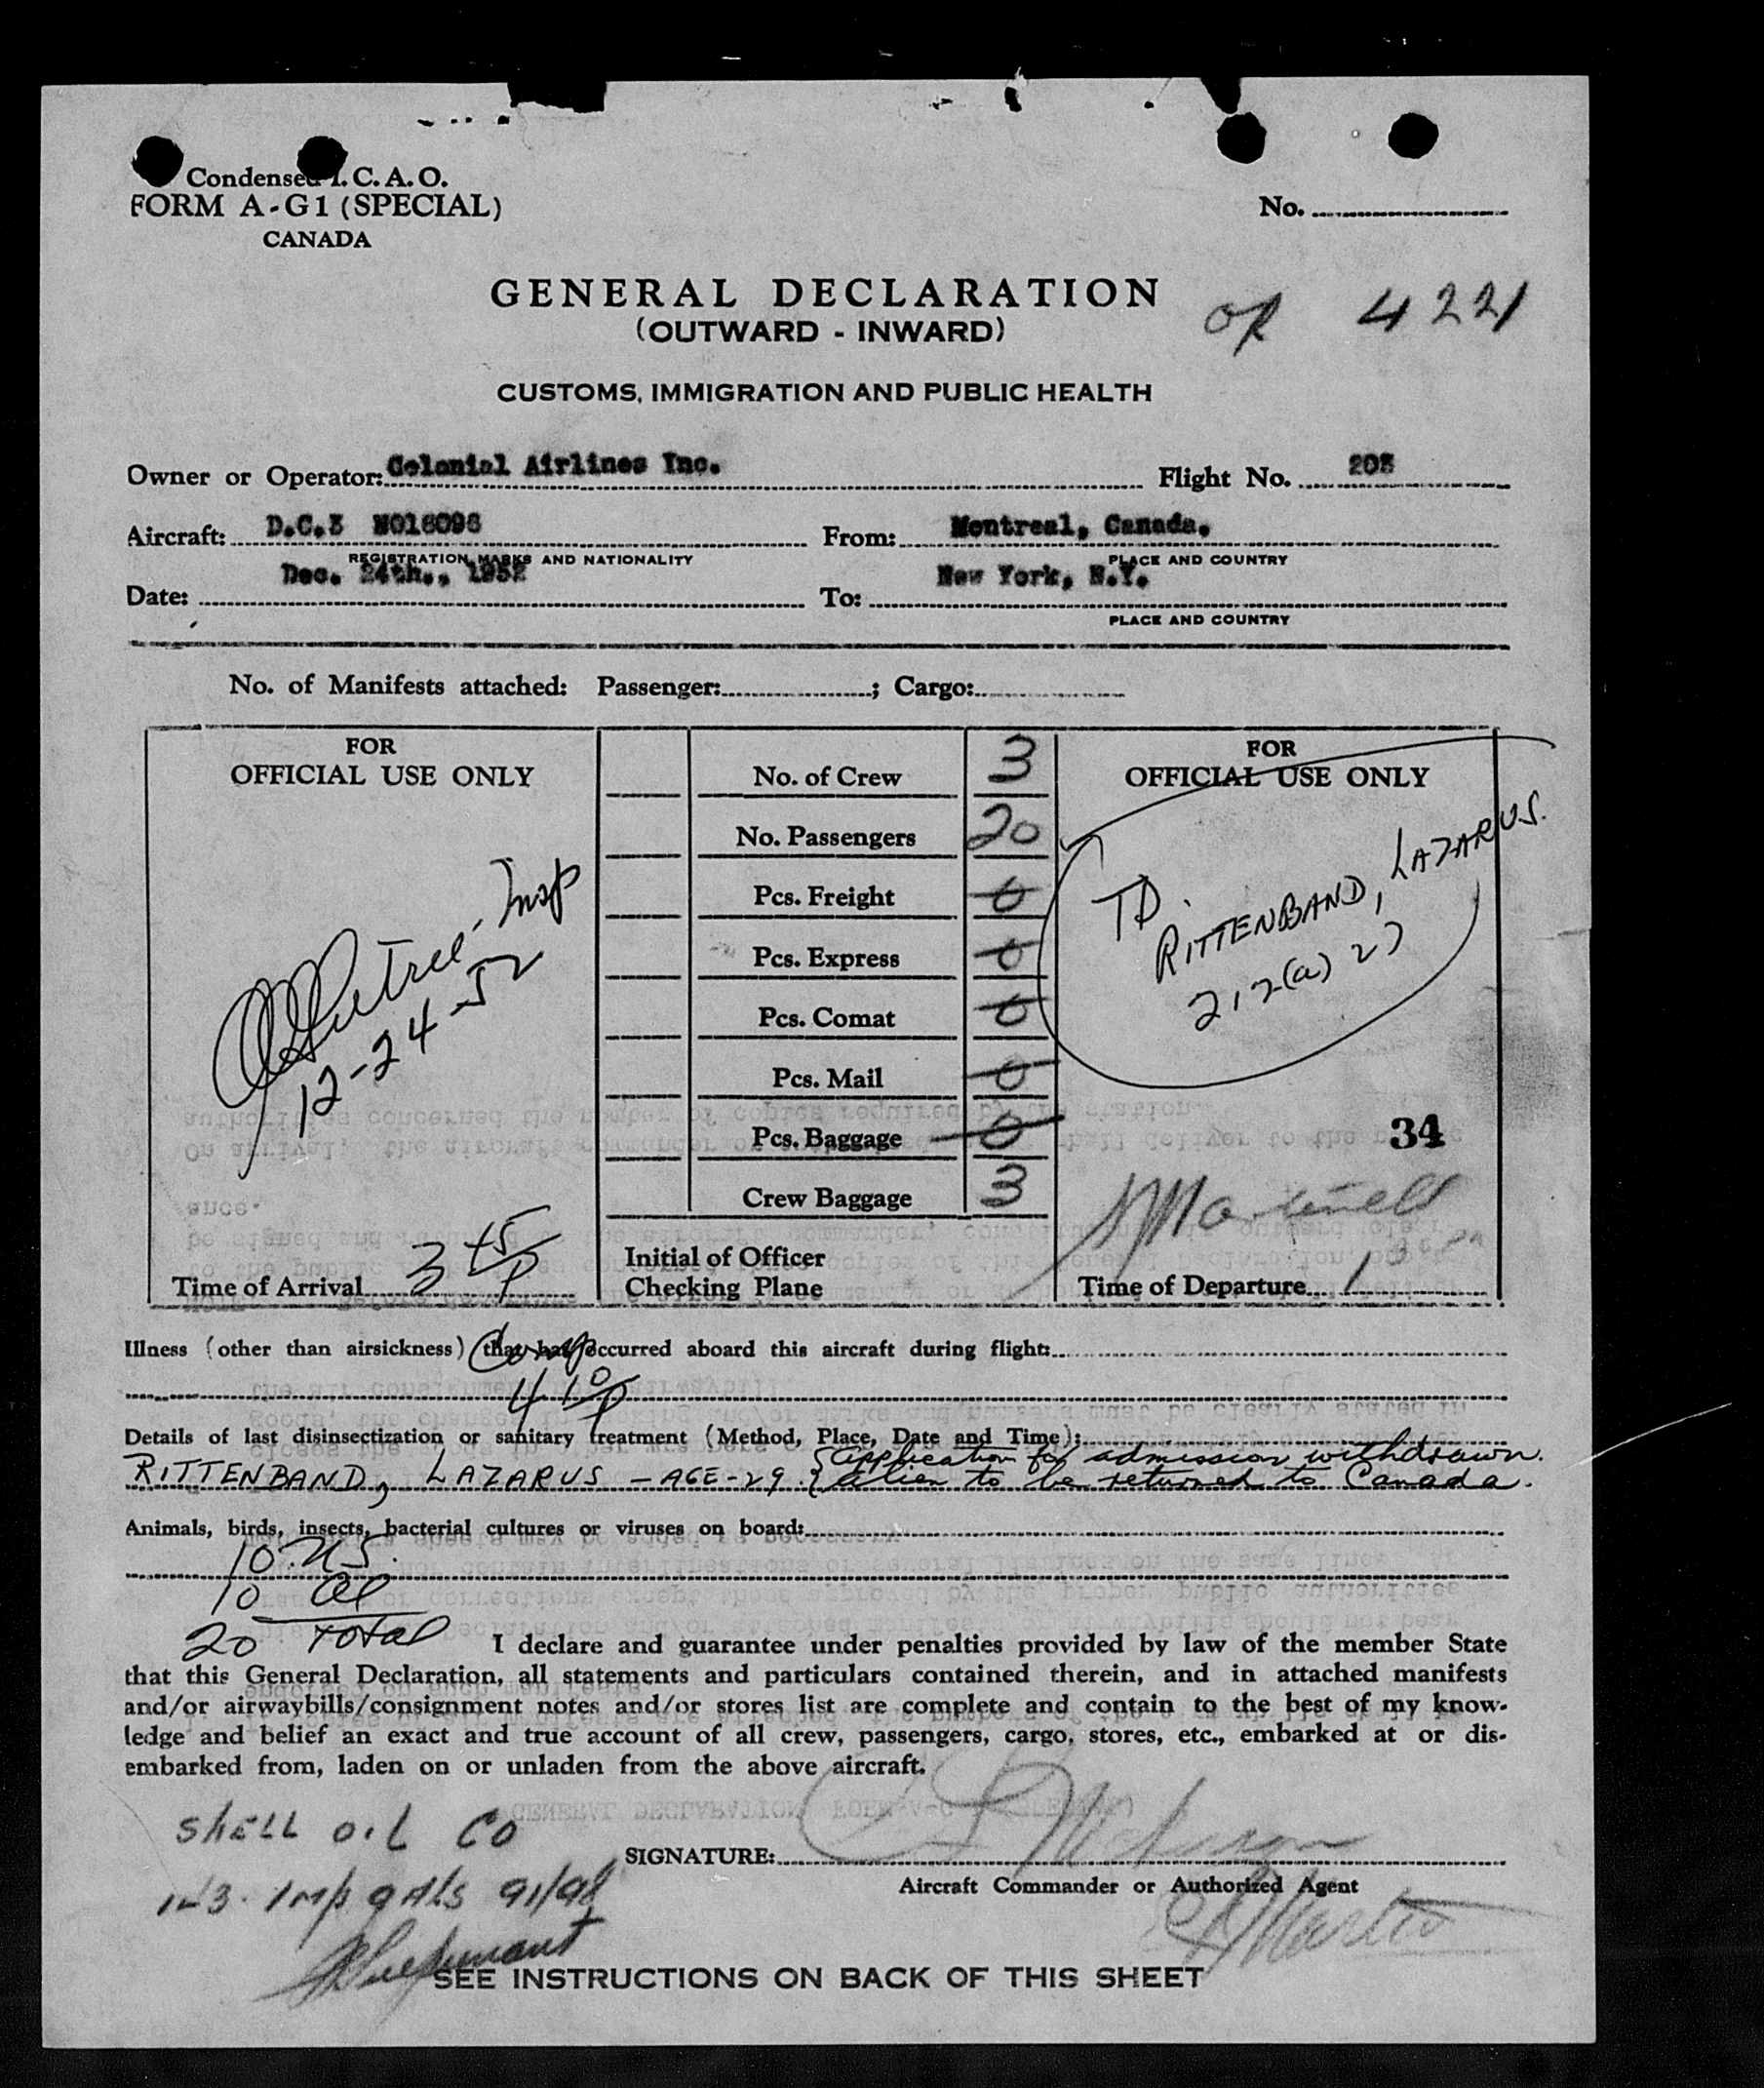 Condensed I.C.A.O.
FORM A-G1 (SPECIAL)
CANADA
No.
GENERAL DECLARATION
(OUTWARD - INWARD)
OR 4221
CUSTOMS, IMMIGRATION AND PUBLIC HEALTH
Owner or Operator: Colonial Airlines Inc. Flight No. 203
Aircraft: D.C.3 N018098 From: Montreal, Canada.
REGISTRATION MARKS AND NATIONALITY PLACE AND COUNTRY
Date: Dec. 24th., 1952 To: New York, N.Y.
PLACE AND COUNTRY
No. of Manifests attached: Passenger: ; Cargo:
FOR
OFFICIAL USE ONLY
Insp
12-24-52
Time of Arrival 3 45 P
No. of Crew 3
No. Passengers 20
Pcs. Freight 0
Pcs. Express 0
Pcs. Comat 0
Pcs. Mail 0
Pcs. Baggage 0
Crew Baggage 3
Initial of Officer
Checking Plane
FOR
OFFICIAL USE ONLY
TD.
RITTENBAND, LAZARUS.
212(a) 27
34
Time of Departure 1
Illness (other than airsickness) that has occurred aboard this aircraft during flight:
Comp
4 10 P
Details of last disinsectization or sanitary treatment (Method, Place, Date and Time):
RITTENBAND, LAZARUS - AGE - 29. { Application for admission withdrawn.
alien to be returned to Canada.
Animals, birds, insects, bacterial cultures or viruses on board:
10 US.
10 al
20 Total
I declare and guarantee under penalties provided by law of the member State
that this General Declaration, all statements and particulars contained therein, and in attached manifests
and/or airwaybills/consignment notes and/or stores list are complete and contain to the best of my know-
ledge and belief an exact and true account of all crew, passengers, cargo, stores, etc., embarked at or dis-
embarked from, laden on or unladen from the above aircraft.
SHELL OIL CO
SIGNATURE:
Imp gals 91/98
Aircraft Commander or Authorized Agent
SEE INSTRUCTIONS ON BACK OF THIS SHEET